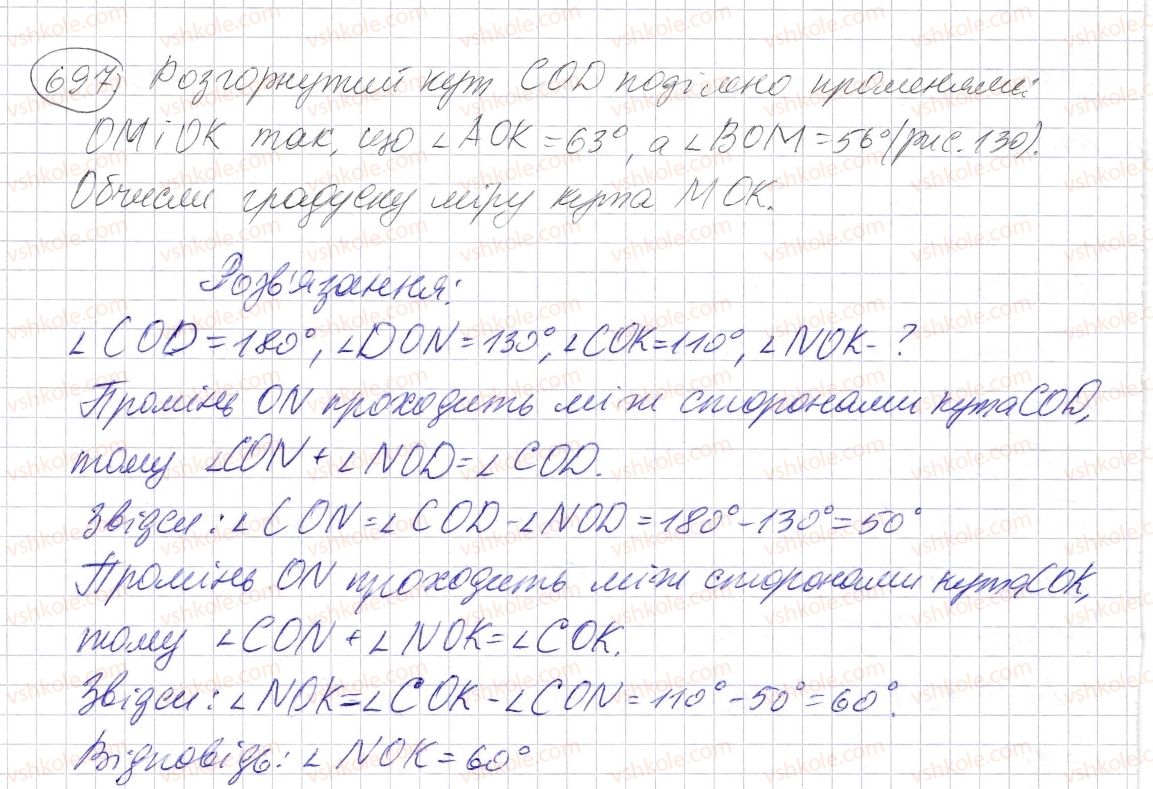 697) Розгорнутий кут COD поділено променями
OM і OK так, що ∠AOK = 63°, а ∠BOM = 56° (рис. 130).
Обчисли градусну міру кута MOK.
Розв'язання:
∠COD = 180°, ∠DON = 130°, ∠COK = 110°, ∠NOK - ?
Промінь ON проходить між сторонами кута COD,
тому ∠CON + ∠NOD = ∠COD.
Звідси: ∠CON = ∠COD - ∠NOD = 180° - 130° = 50°
Промінь ON проходить між сторонами кута COK,
тому ∠CON + ∠NOK = ∠COK.
Звідси: ∠NOK = ∠COK - ∠CON = 110° - 50° = 60°.
Відповідь: ∠NOK = 60°